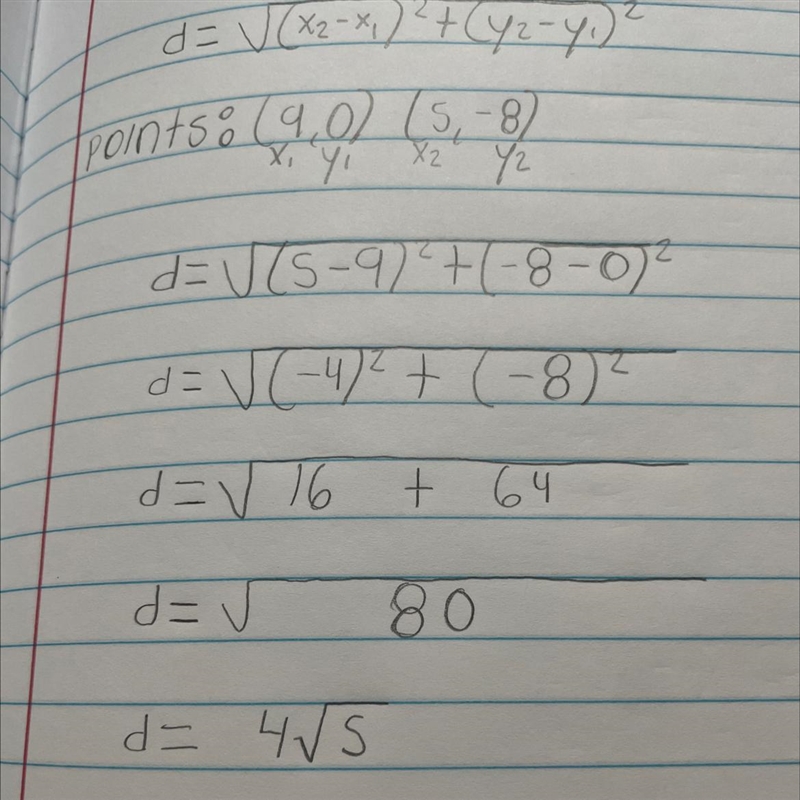 d = √(x₂ - x₁)² + (y₂ - y₁)²
points: (9, 0) (5, -8)
x₁ y₁ x₂ y₂
d = √(5 - 9)² + (-8 - 0)²
d = √(-4)² + (-8)²
d = √16 + 64
d = √80
d = 4√5